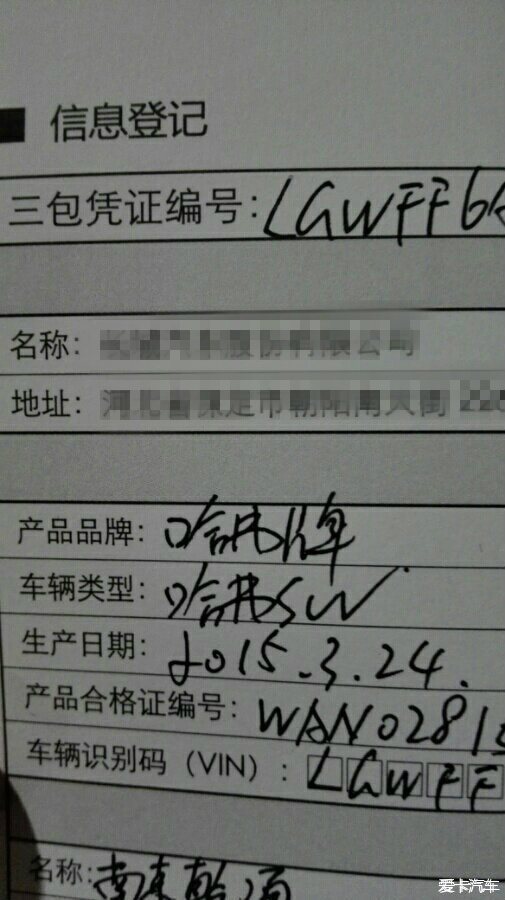 信息登记
三包凭证编号:LGWFF6A
名称:
地址:
产品品牌:哈弗牌
车辆类型:哈弗SUV
生产日期:2015.3.24.
产品合格证编号:WAN0281
车辆识别码(VIN):LGWFF
名称:南京
爱卡汽车